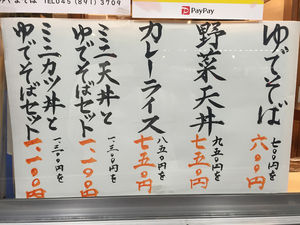 TEL045(891)3709
PayPay
ゆでそば
七〇〇円を
六〇〇円
野菜天丼
九五〇円を
七五〇円
カレーライス
八五〇円を
七五〇円
ミニ天丼と
ゆでそばセット
一、三〇〇円を
一、一〇〇円
ミニカツ丼と
ゆでそばセット
一、三〇〇円を
一、一〇〇円